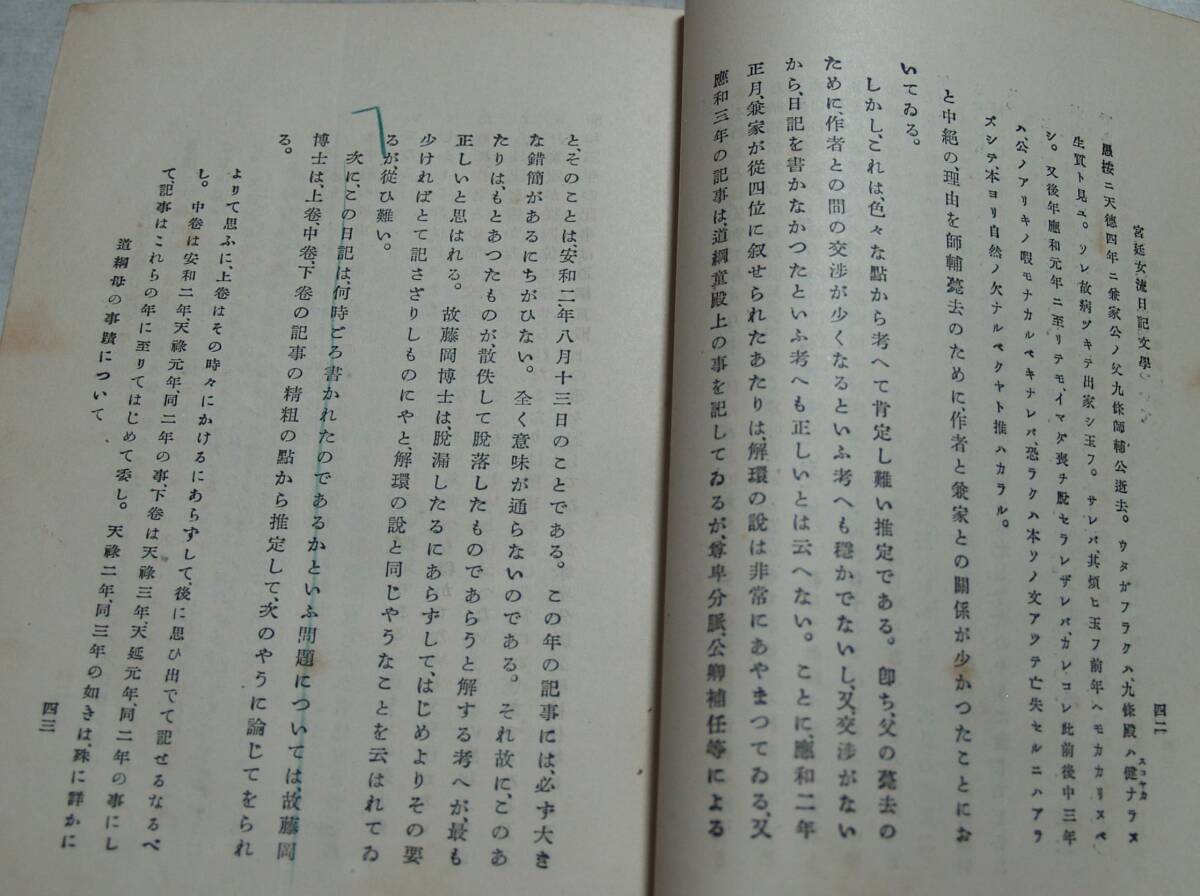 宮廷女流日記文學
四二
愚按ニ天德四年ニ兼家公ノ父九條師輔公逝去。ウタガフラクハ、九條殿ハ健ナラヌ
スコヤカ
生質ト見ユ。ソレ故病ヅキテ出家シ玉フ。サレバ其煩ヒ玉フ前年ヘモカカリヌベ
シ。又後年應和元年ニ至リテモ、イマダ喪チ脫セラレザレバ、カレコレ此前後中三年
ハ公ノアリキノ暇モナカルベキナレバ、恐ラクハ本ソノ文アツテ亡失セルニハアラ
ズシテ、本ヨリ自然ノ欠ナルベクヤト推ハカラル。
と中絶の理由を師輔薨去のために、作者と兼家との關係が少かつたことにお
いてゐる。
しかし、これは、色々な點から考へて肯定し難い推定である。卽ち、父の薨去の
ために、作者との間の交渉が少くなるといふ考へも穩かでないし、又、交渉がない
から、日記を書かなかつたといふ考へも正しいとは云へない。ことに、應和二年
正月、兼家が從四位に叙せられたあたりは、解環の說は非常にあやまつてゐる、又
應和三年の記事は、道綱童殿上の事を記してゐるが、尊卑分脈、公卿補任等による
と、そのことは、安和二年八月十三日のことである。この年の記事には、必ず大き
な錯簡があるにちがひない。全く意味が通らないのである。それ故に、このあ
たりは、もとあつたものが、散佚して脫落したものであらうと解する考へが、最も
正しいと思はれる。故藤岡博士は、脫漏したるにあらずして、はじめよりその要
少ければとて記さざりしものにやと、解環の說と同じやうなことを云はれてゐ
るが、從ひ難い。
次に、この日記は、何時ごろ書かれたのであるかといふ問題については、故藤岡
博士は、上卷、中卷、下卷の記事の精粗の點から推定して、次のやうに論じてをられ
る。
よりて思ふに、上卷はその時々にかけるにあらずして、後に思ひ出でて記せるなるべ
し。中卷は安和二年、天祿元年、同二年の事、下卷は天祿三年、天延元年、同二年の事にし
て、記事はこれらの年に至りてはじめて委し。天祿二年、同三年の如きは、殊に詳かに
道綱母の事蹟について
四三